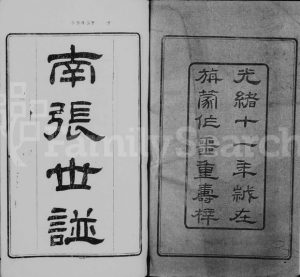 光緒十一年歲在
旃蒙作噩重壽梓
南張世譜
FamilySearch